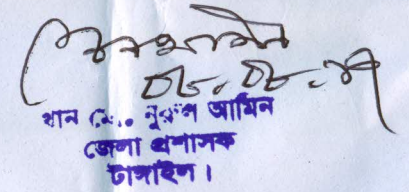 ০৮.০৮.
খান মোঃ নুরুল আমিন
জেলা প্রশাসক
টাঙ্গাইল।